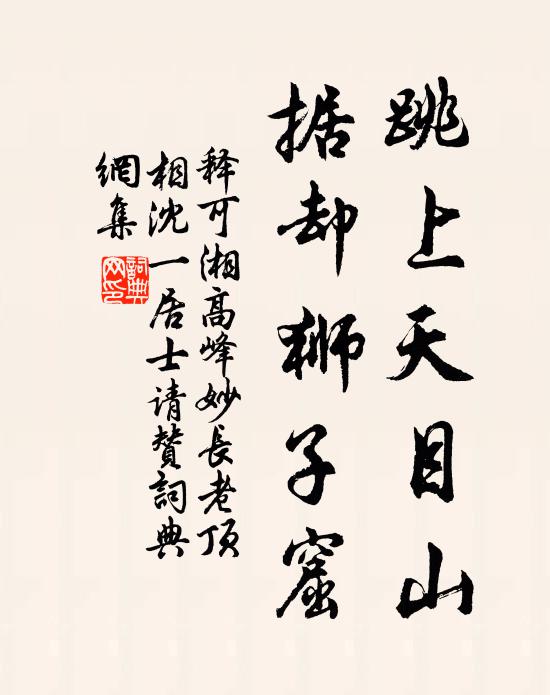 跳上天目山
据却狮子窟
释可湘高峰妙长老顶
相沈一居士请赞詞典
網集
詞典网印